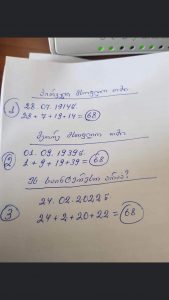 პირველი მსოფლიო ომი
1 28.07.1914წ.
28+7+19+14=68
მეორე მსოფლიო ომი
2 01.09.1939წ.
1+9+19+39=68
ეს საინტერესო არის?
24.02.2022წ
3 24+2+20+22=68